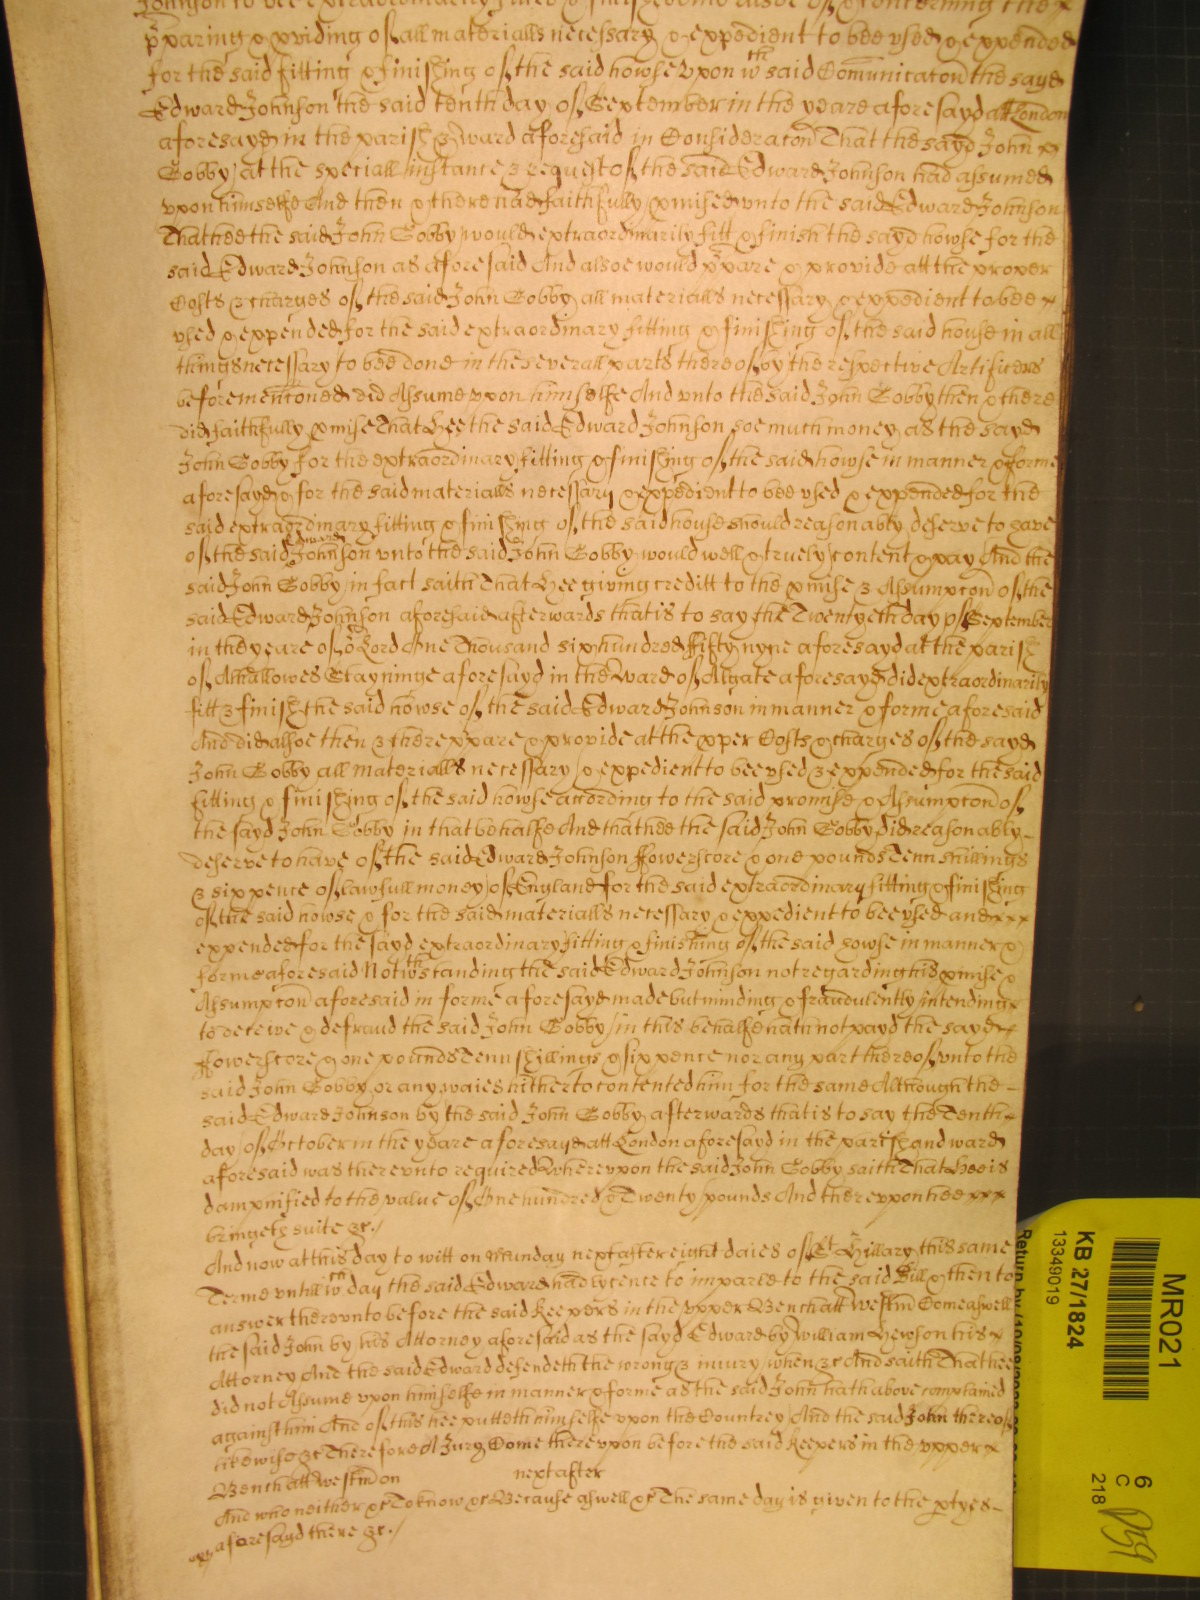 Johnson to bee extraordinarily fitted & finished And alsoe of & concerning the
p̱paring & p̱viding of all materialls necessary & expedient to bee vsed & expended
for the said fitting & finishing of the said howse Vpon wth said Comunicacon the sayd
Edward Johnson the said tenth day of September in the yeare aforesayd att London
aforesayd in the parish & ward aforesaid in Consideracon That the sayd John
Gobby at the speciall instance & request of the said Edward Johnson had assumed
vpon himselfe And then & there had faithfully p̱mised vnto the said Edward Johnson
That hee the said John Gobby would extraordinarily fitt & finish the sayd howse for the
said Edward Johnson as aforesaid And alsoe would p̱pare & provide att the proper
Costs & charges of the said John Gobby all materialls necessary & expedient to bee
vsed & expended for the said extraordinary fitting & finishing of the said house in all
things necessary to bee done in the severall parts thereof by the respective Artificers
beforemenconed did Assume vpon himselfe And vnto the said John Gobby then & there
did faithfully p̱mise That Hee the said Edward Johnson soe much money as the sayd
John Gobby for the extraordinary fitting & finishing of the said howse in manner & forme
aforesayd & for the said materialls necessary & expedient to bee vsed & expended for the
said extraordinary fitting & finishing of the said house should reasonably deserve to have
of the said Edward Johnson vnto the said John Gobby would well & truely content & pay And the
said John Gobby in fact saith That Hee giving creditt to the p̱mise & Assumpcon of the
said Edward Johnson aforesaid afterwards that is to say the Twentyeth day of September
in the yeare of oʳ Lord One Thousand six hundred Fifty nyne aforesayd at the parish
of Alhallowes Stayninge aforesayd in the Ward of Algate aforesayd did extraordinarily
fitt & finish the said howse of the said Edward Johnson in manner & forme aforesaid
And did alsoe then & there p̱pare & provide at the p̱per Costs & charges of the sayd
John Gobby all materialls necessary & expedient to bee vsed & expended for the said
fitting & finishing of the said howse according to the said promise & Assumpcon of
the sayd John Gobby in that behalfe And that hee the said John Gobby did reasonably
deserve to have of the said Edward Johnson ffowerscore & one pounds Tenn shillings
& six pence of lawfull money of England for the said extraordinary fitting & finishing
of the said howse & for the said materialls necessary & expedient to bee vsed and
expended for the sayd extraordinary fitting & finishing of the said howse in manner &
forme aforesaid Notwthstanding the said Edward Johnson not regarding his p̱mise &
Assumpcon aforesaid in forme aforesayd made but minding & fraudulently intending
to deceive & defraud the said John Gobby in this behalfe hath not payd the sayd
ffowerscore & one pounds Tenn shillings & six pence nor any part thereof vnto the
said John Gobby or any waies hitherto contented him for the same Although the
said Edward Johnson by the said John Gobby afterwards that is to say the Tenth
day of October in the yeare aforesayd att London aforesayd in the parish and ward
aforesaid was therevnto required Wherevpon the said John Gobby saith That Hee is
dampnified to the value of One hundred & Twenty pounds And therevpon hee
bringeth suite &c.
And now at this day to witt on Munday next after eight daies of St Hillary this same
Terme vntill wth day the said Edward had lycence to imparle to the said Bill & then to
answer therevnto before the said Keepers in the vpper Bench att Westm Come aswell
the said John by his Attorney aforesaid as the sayd Edward by William Hewson his
Attorney And the said Edward defendeth the wrong & iniury when &c And saith That hee
did not Assume vpon himselfe in manner & forme as the said John hath above complained
against him And of this hee putteth himselfe vpon the Countrey And the said John thereof
likewise &c Therefore A Jury Come therevpon before the said Keepers in the vpper
Bench att Westm on next after
And who neither &c To know &c Because aswell &c The same day is given to the p̱tyes
aforesayd there &c.
MR021
KB 27/1824
13349019
6
C
218